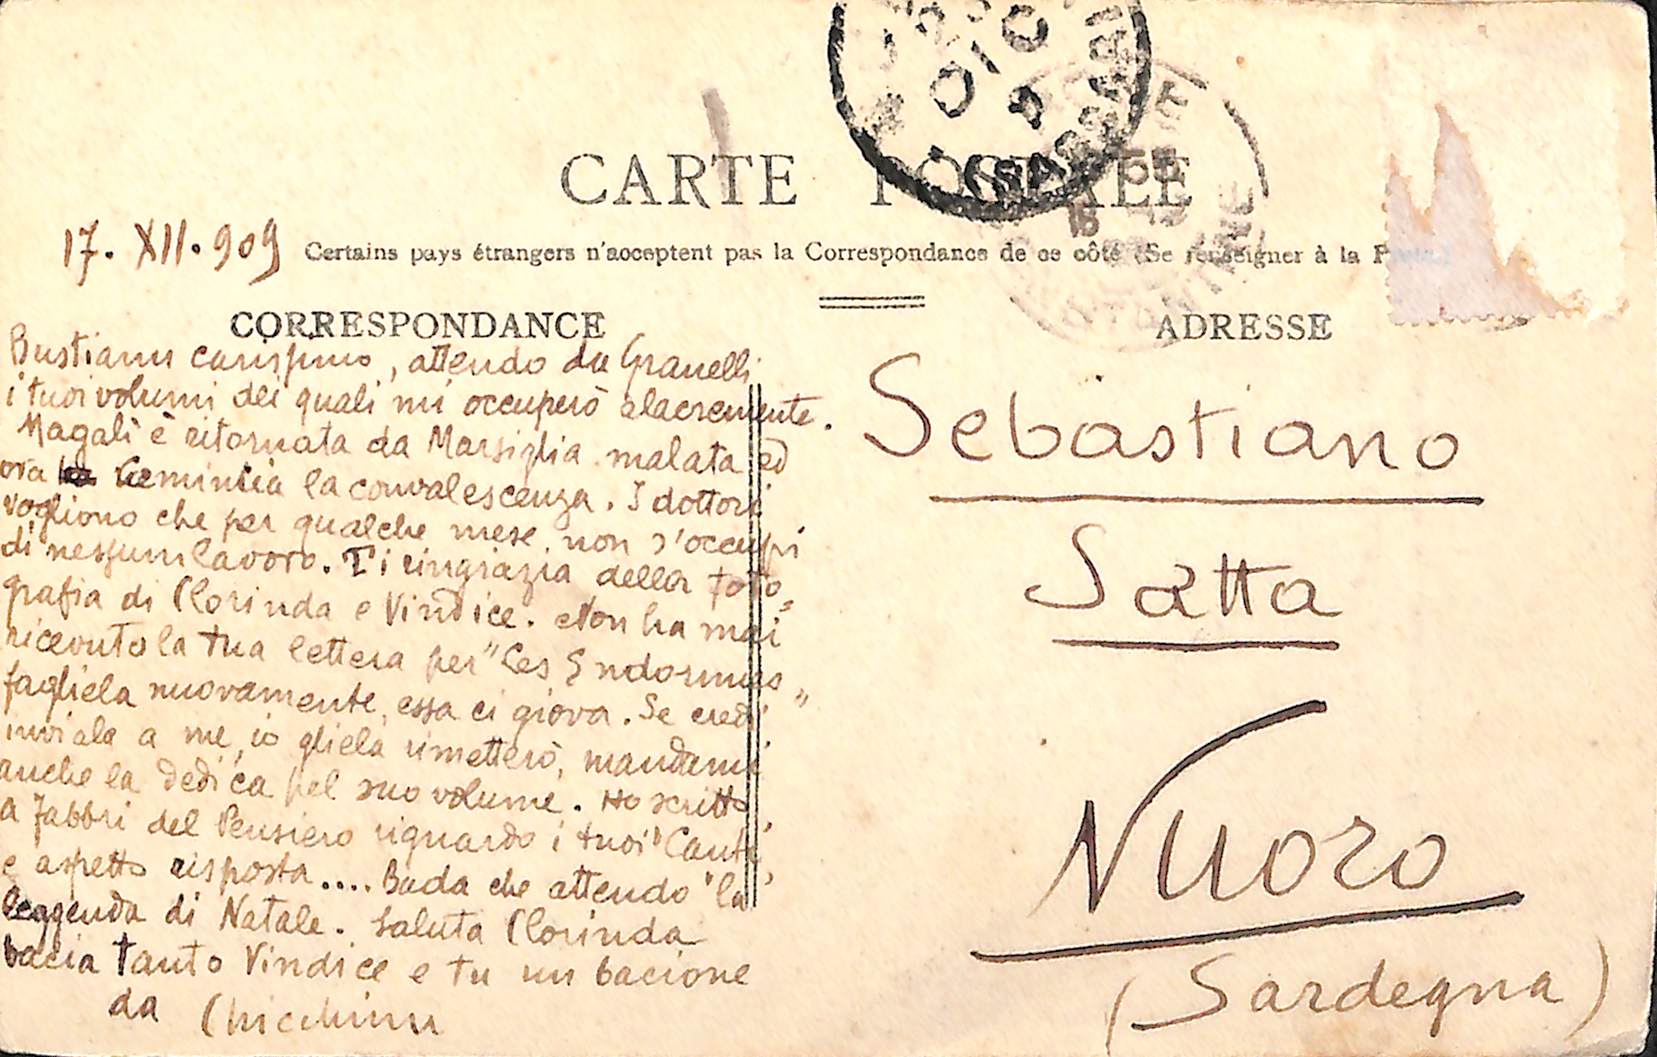 CARTE POSTALE
17. XII. 909
Certains pays étrangers n'acceptent pas la Correspondance de ce côté (Se renseigner à la Poste.)
CORRESPONDANCE
Bustianu carissimo, attendo da Granelli
i tuoi volumi dei quali mi occuperò alacremente.
Magali è ritornata da Marsiglia malata ed
ora comincia la convalescenza. I dottori
vogliono che per qualche mese non s'occupi
di nessun lavoro. Ti ringrazia della foto=
grafia di Clorinda e Vindice. Non ha mai
ricevuto la tua lettera per "Les Endormies"
fagliela nuovamente, essa ci giova. Se credi
inviala a me, io gliela rimetterò, mandami
anche la dedica pel suo volume. Ho scritto
a Fabbri del Pensiero riguardo i tuoi "Canti"
e aspetto risposta.... Bada che attendo "la
leggenda di Natale. Saluta Clorinda
bacia tanto Vindice e tu un bacione
da Chicchinu
ADRESSE
Sebastiano
Satta
Nuoro
(Sardegna)